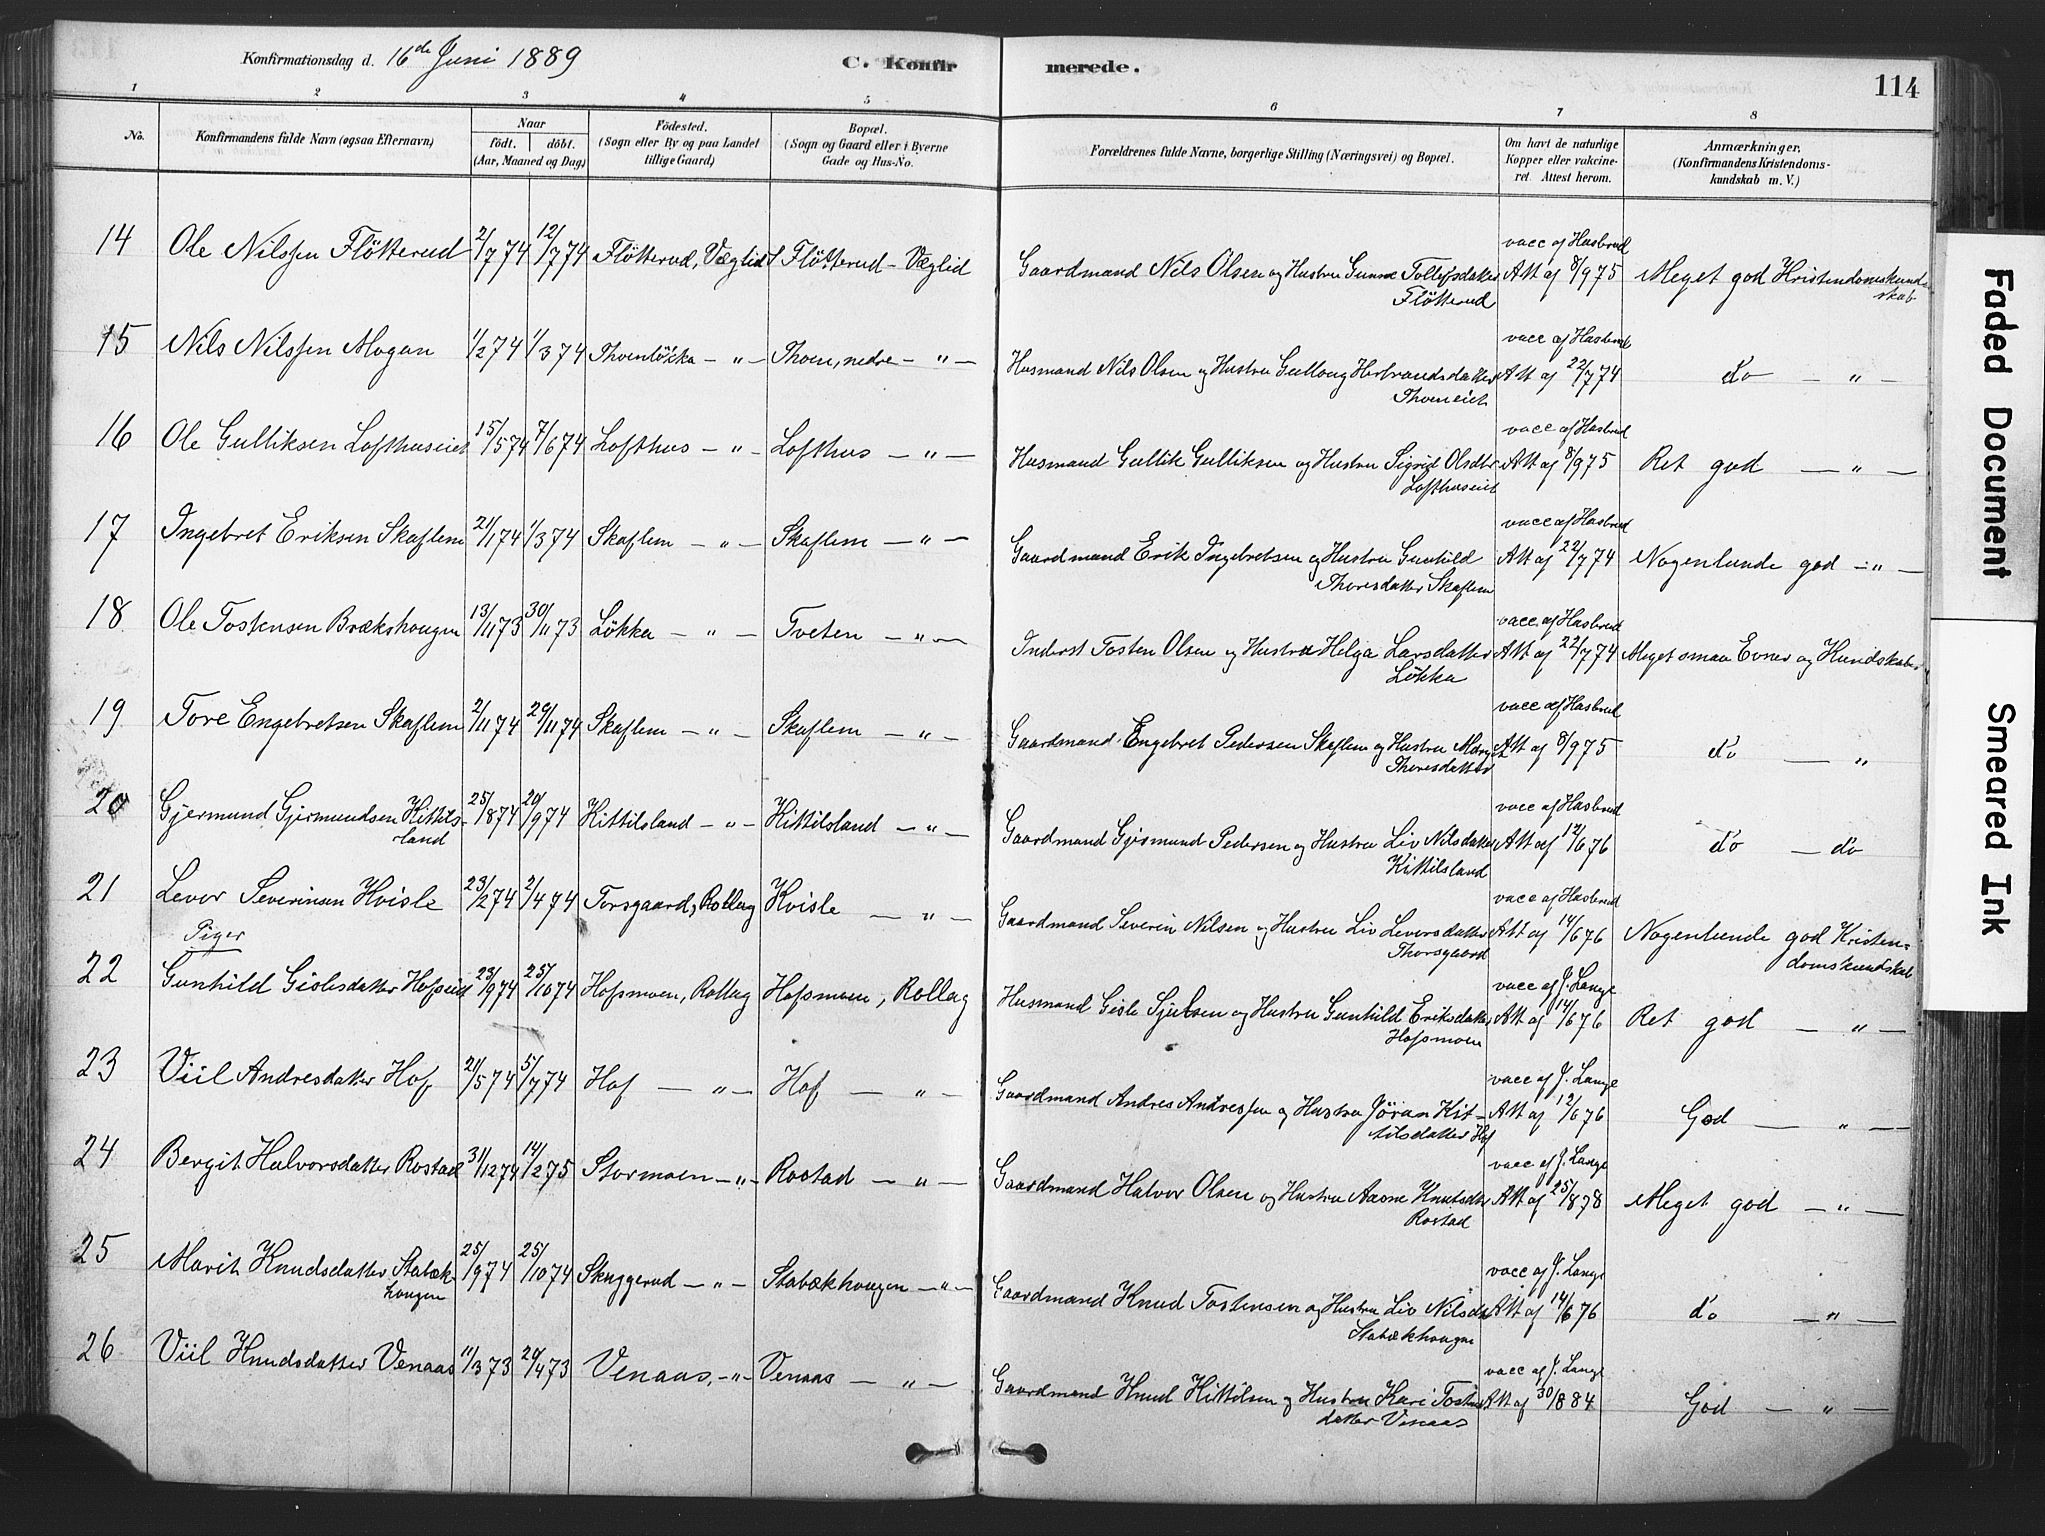 Konfirmationsdag d. 16de Juni 1889 C. Konfir merede. 114
1 2 3 4 5 6 7 8
No. Konfirmandens fulde Navn (ogsaa Efternavn) Naar født. døbt. (Aar, Maaned og Dag) Fødested. (Sogn eller By og paa Landet tillige Gaard) Bopæl. (Sogn og Gaard eller i Byerne Gade og Hus-No. Forældrenes fulde Navne, borgerlige Stilling (Næringsvei) og Bopæl. Om havt de naturlige Kopper eller vakcineret. Attest herom. Anmærkninger. (Konfirmandens Kristendomskundskab m. V.)
14 Ole Nilssen Fløtterud 2/7 74 12/7 74 Fløtterud, Væglid Fløtterud - Væglid Gaardmand Nils Olsen og Hustru Gunne Tollefsdatter Fløtterud vacc af Hasbrud Att af 8/9 75 Meget god Kristendomskundskab
15 Nils Nilssen Mogan 1/2 74 1/3 74 Thoenløkka - " - Thoen, nedre - " - Husmand Nils Olsen og Hustru Gullaug Herbrandsdatter Thoeneiet vacc af Hasbrud Att af 22/7 74 do - " -
16 Ole Gulliksen Lofthuseiet 15/5 74 7/6 74 Lofthus - " - Lofthus - " - Husmand Gullik Gulliksen og Hustru Sigrid Olsdtr Lofthuseiet vacc af Hasbrud Att af 8/9 75 Ret god - " -
17 Ingebret Eriksen Skaflem 21/1 74 1/3 74 Skaflem - " - Skaflem - " - Gaardmand Erik Ingebretsen og Hustru Gunhild Thoresdatter Skaflem vacc af Hasbrud Att af 22/7 74 Nogenlunde god - " -
18 Ole Tostensen Brækshougen 13/11 73 30/11 73 Løkka - " - Tveten - " - Inderst Tosten Olsen og Hustru Helga Larsdatter Løkka vacc af Hasbrud Att af 22/7 74 Meget smaa Evner og Kundskaber
19 Tore Engebretsen Skaflem 2/11 74 29/11 74 Skaflem - " - Skaflem - " - Gaardmand Engebret Pedersen Skaflem og Hustru Thoresdatter vacc af Hasbrud Att af 8/9 75 do - "
20 Gjermund Gjermundsen Kittilsland 25/8 74 20/9 74 Kittilsland - " - Kittilsland - " - Gaardmand Gjermund Pedersen og Hustru Liv Nilsdatter Kittilsland vacc af Hasbrud Att af 12/6 76 do - do
21 Levor Severinsen Kvisle 23/2 74 2/4 74 Torsgaard, Rollag Kvisle - " - Gaardmand Severin Nilsen og Hustru Liv Leversdatter Thorsgaard vacc af Hasbrud Att af 14/6 76 Nogenlunde god Kristendomskundskab
Piger
22 Gunhild Gislesdatter Hofseiet 23/9 74 25/10 74 Hofsmoen, Rollag Hofsmoen, Rollag Husmand Gisle Sjulsen og Hustru Gunhild Eriksdatter Hofsmoen vacc af J. Lange Att af 14/6 76 Ret god - " -
23 Viil Andresdatter Hof 21/5 74 5/7 74 Hof - " - Hof - " - Gaardmand Andres Andressen og Hustru Jøran Kittilsdatter Hof vacc af J. Lange Att af 12/6 76 God - " -
24 Bergit Halvorsdatter Rostad 31/12 74 14/2 75 Stormoen - " - Rostad - " - Gaardmand Halvor Olsen og Hustru Aasne Knutsdtr Rostad vacc af J. Lange Att af 25/8 78 Meget god - " -
25 Marit Knudsdatter Stabækhougen 25/9 74 25/10 74 Skuggerud - " - Stabækhougen - " - Gaardmand Knud Tostensen og Hustru Liv Nilsdtr Stabækhougen vacc af J. Lange Att af 14/6 76 do - " -
26 Viil Knudsdatter Venaas 11/3 73 20/4 73 Venaas, - " - Venaas - " - Gaardmand Knud Kittilsen og Hustru Kari Tostensdatter Venaas vacc af J. Lange Att af 30/8 84 God - " -
Faded Document
Smeared Ink